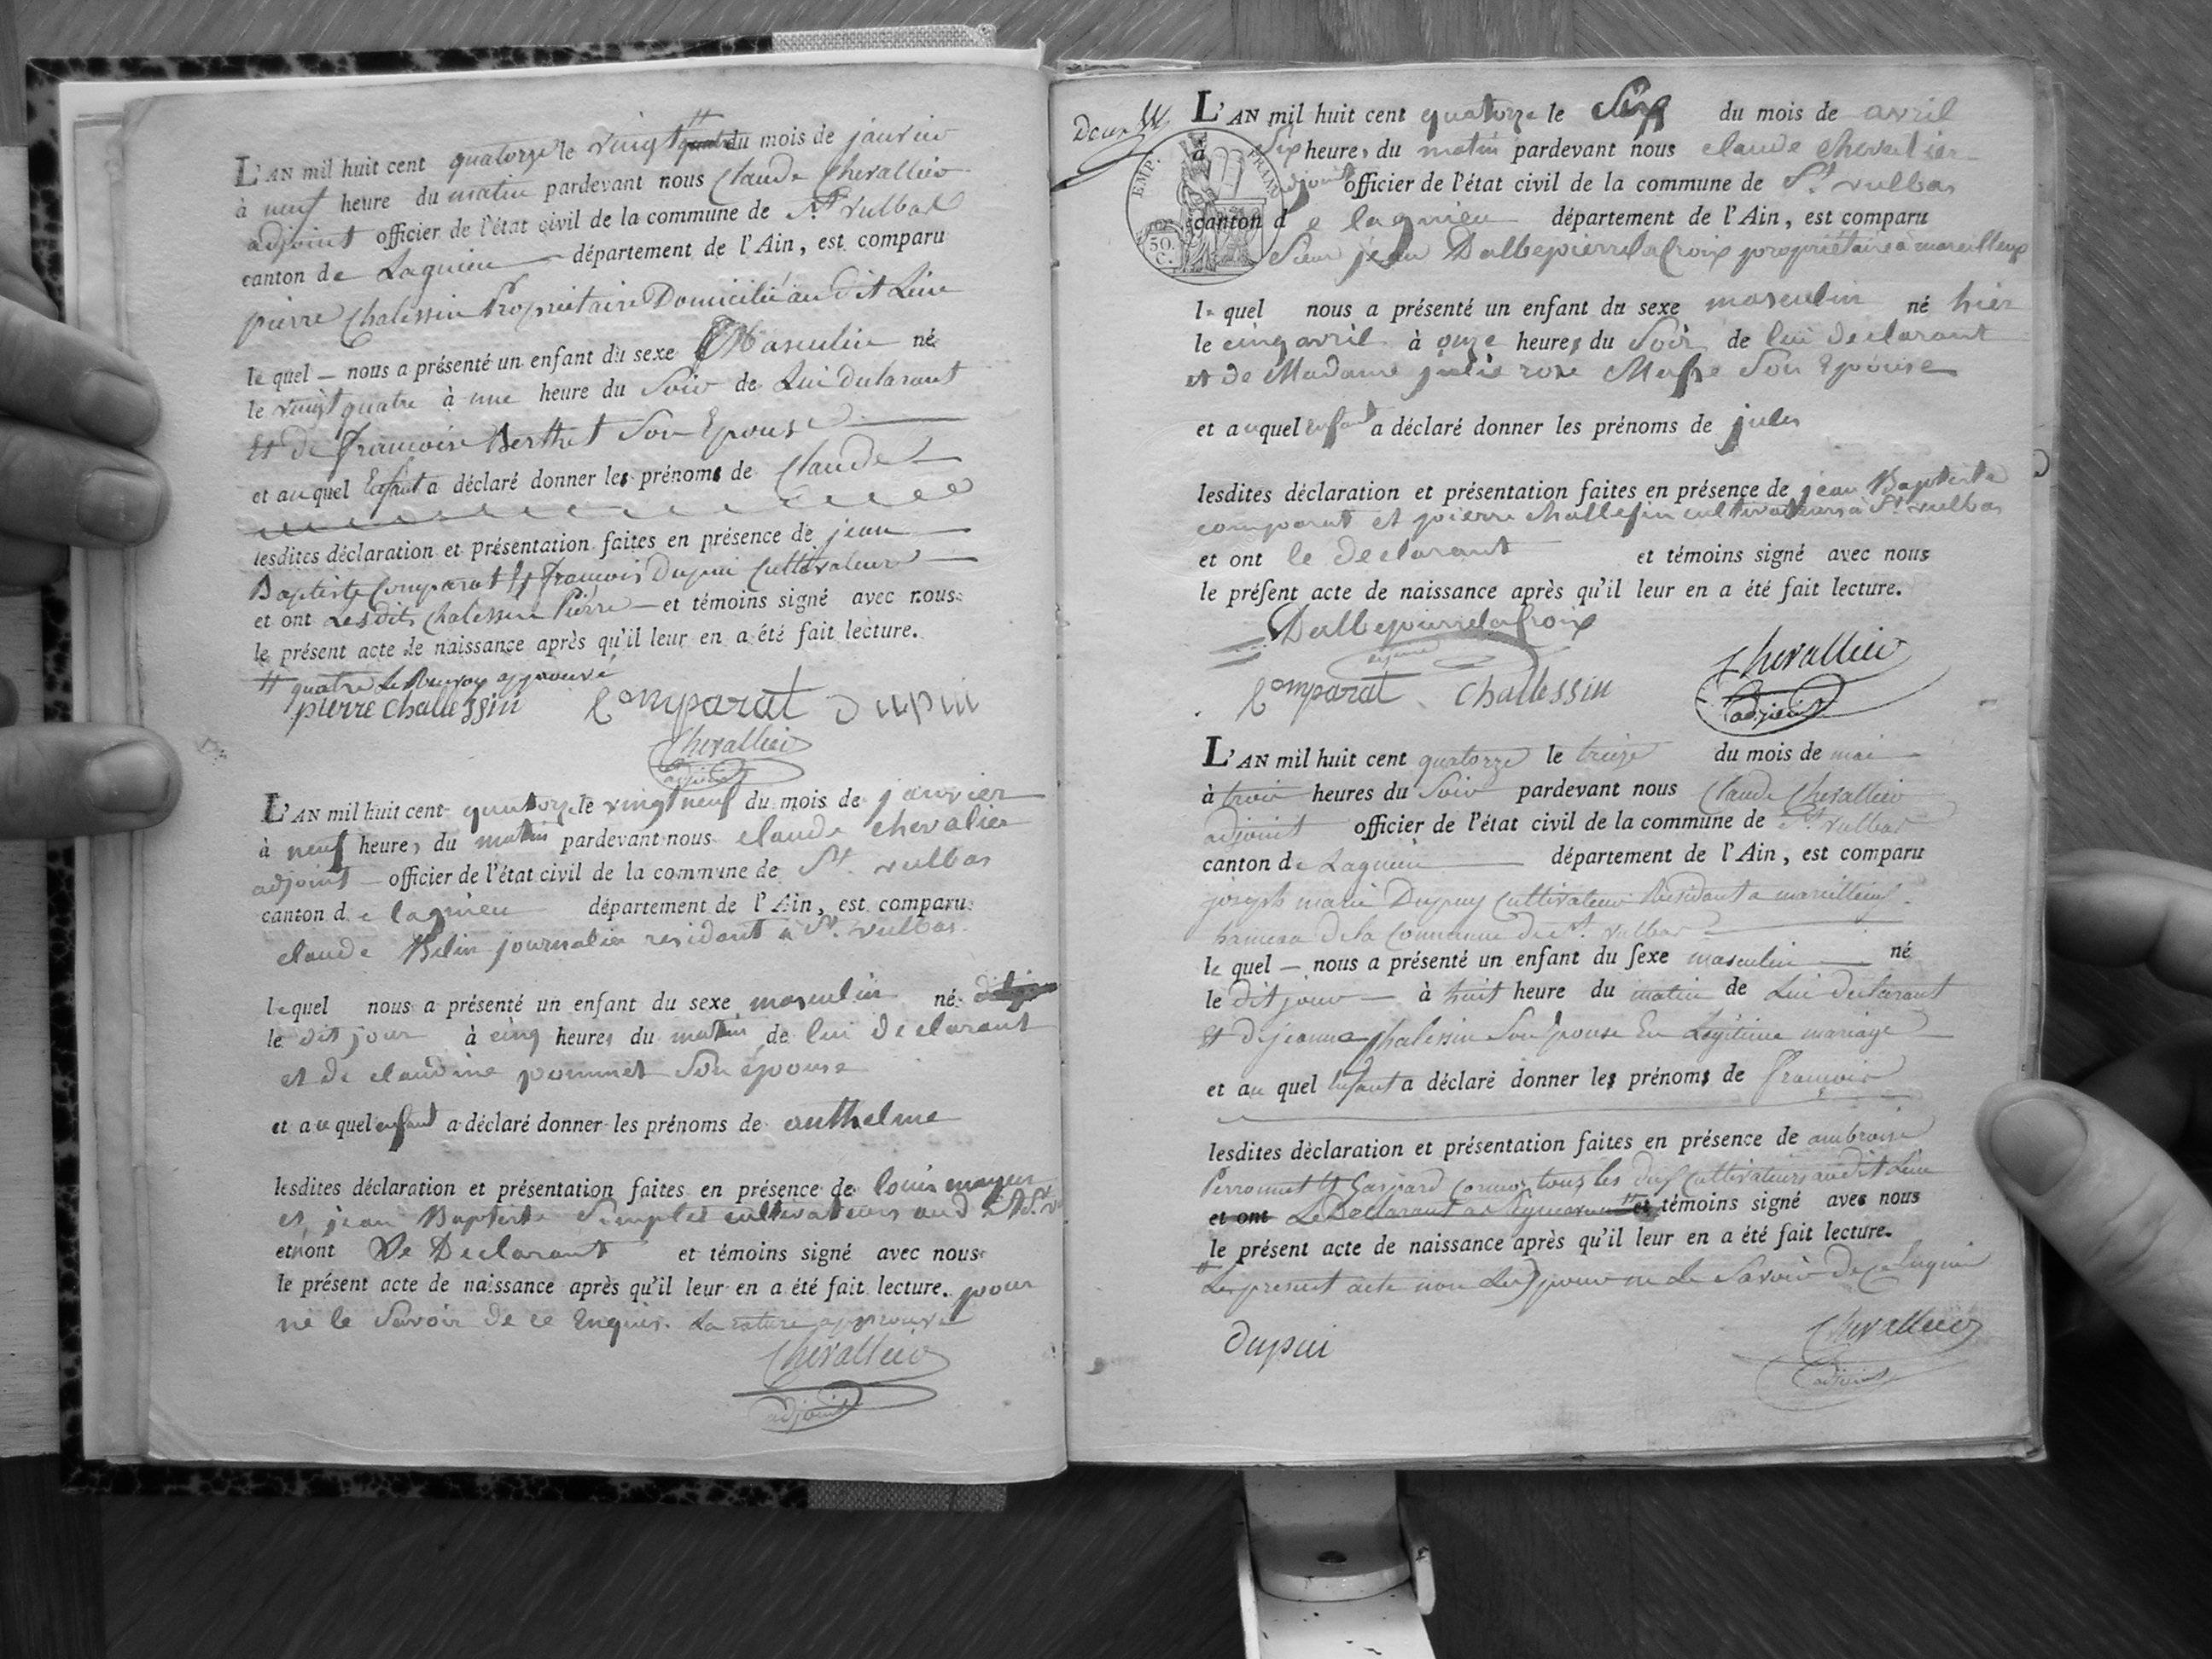 L'AN mil huit cent quatorze le vingt # du mois de janvier
à neuf heure du matin pardevant nous Claude Chevallier
adjoint officier de l'état civil de la commune de St. vulbas
canton de Lagnieu département de l'Ain, est comparu
pierre Chalessin Propriétaire Domicilié au dit Lieu
lequel nous a présenté un enfant du sexe Masculin né
le vingt quatre à une heure du Soir de Lui declarant
Et de francoise Berthet Son Epouse
et au quel Enfant a déclaré donner les prénoms de Claude
lesdites déclaration et présentation faites en présence de jean
Baptiste Comparat & francois Dupui Cultivateurs
et ont Lesdits Chalessin Pierre et témoins signé avec nous
le présent acte de naissance après qu'il leur en a été fait lecture.
# quatre Le Renvoy approuvé
pierre challessin Comparat Dupui
Chevallier
adjoint
L'AN mil huit cent quatorze le vingt neuf du mois de janvier
à neuf heures du matin pardevant nous claude chevalier
adjoint officier de l'état civil de la commune de St. vulbas
canton de lagnieu département de l'Ain, est comparu
claude Belin journalier residant à St. vulbas
lequel nous a présenté un enfant du sexe masculin né
le dit jour à cinq heures du matin de lui declarant
et de claudine pommet Son épouse
et au quel enfant a déclaré donner les prénoms de anthelme
lesdites déclaration et présentation faites en présence de louis mayer
et jean Baptiste Simplet cultivateurs aud. St. v
et n'ont Le Declarant et témoins signé avec nous
le présent acte de naissance après qu'il leur en a été fait lecture. pour
ne le Savoir de ce Enquis. La rature approuvé
Chevallier
adjoint
Deux
EMP. FRAN.
50. C.
L'AN mil huit cent quatorze le Six du mois de avril
à Six heures du matin pardevant nous claude chevalier
adjoint officier de l'état civil de la commune de St. vulbas
canton de lagnieu département de l'Ain, est comparu
Sieur jean Dalbepierrelacroix propriétaire à marcilleux
lequel nous a présenté un enfant du sexe masculin né hier
le cinq avril à onze heures du Soir de lui declarant
et de Madame julie rose Son Epouse
et au quel enfant a déclaré donner les prénoms de jules
lesdites déclaration et présentation faites en présence de jean Baptiste
comparat et pierre challessin cultivateurs à St. vulbas
et ont le declarant et témoins signé avec nous
le présent acte de naissance après qu'il leur en a été fait lecture.
Dalbepierrelacroix
Comparat Challessin Chevallier
adjoint
L'AN mil huit cent quatorze le treize du mois de mai
à trois heures du Soir pardevant nous Claude Chevallier
adjoint officier de l'état civil de la commune de St. vulbas
canton de Lagnieu département de l'Ain, est comparu
joseph marie Dupuy Cultivateur Residant a marcilleux
hameau de la Commune de St. vulbas
le quel nous a présenté un enfant du sexe masculin né
le dit jour à huit heure du matin de Lui declarant
Et de jeanne Chalessin Son Epouse En Légitime mariage
et au quel Enfant a déclaré donner les prénoms de François
lesdites déclaration et présentation faites en présence de ambroise
Perronnet & Gaspard tous les deux Cultivateurs audit Lieu
et ont Le Declarant et témoins signé avec nous
le présent acte de naissance après qu'il leur en a été fait lecture.
Le present acte non Les pour ne Le Savoir de ce Enquis
Dupui Chevallier
adjoint